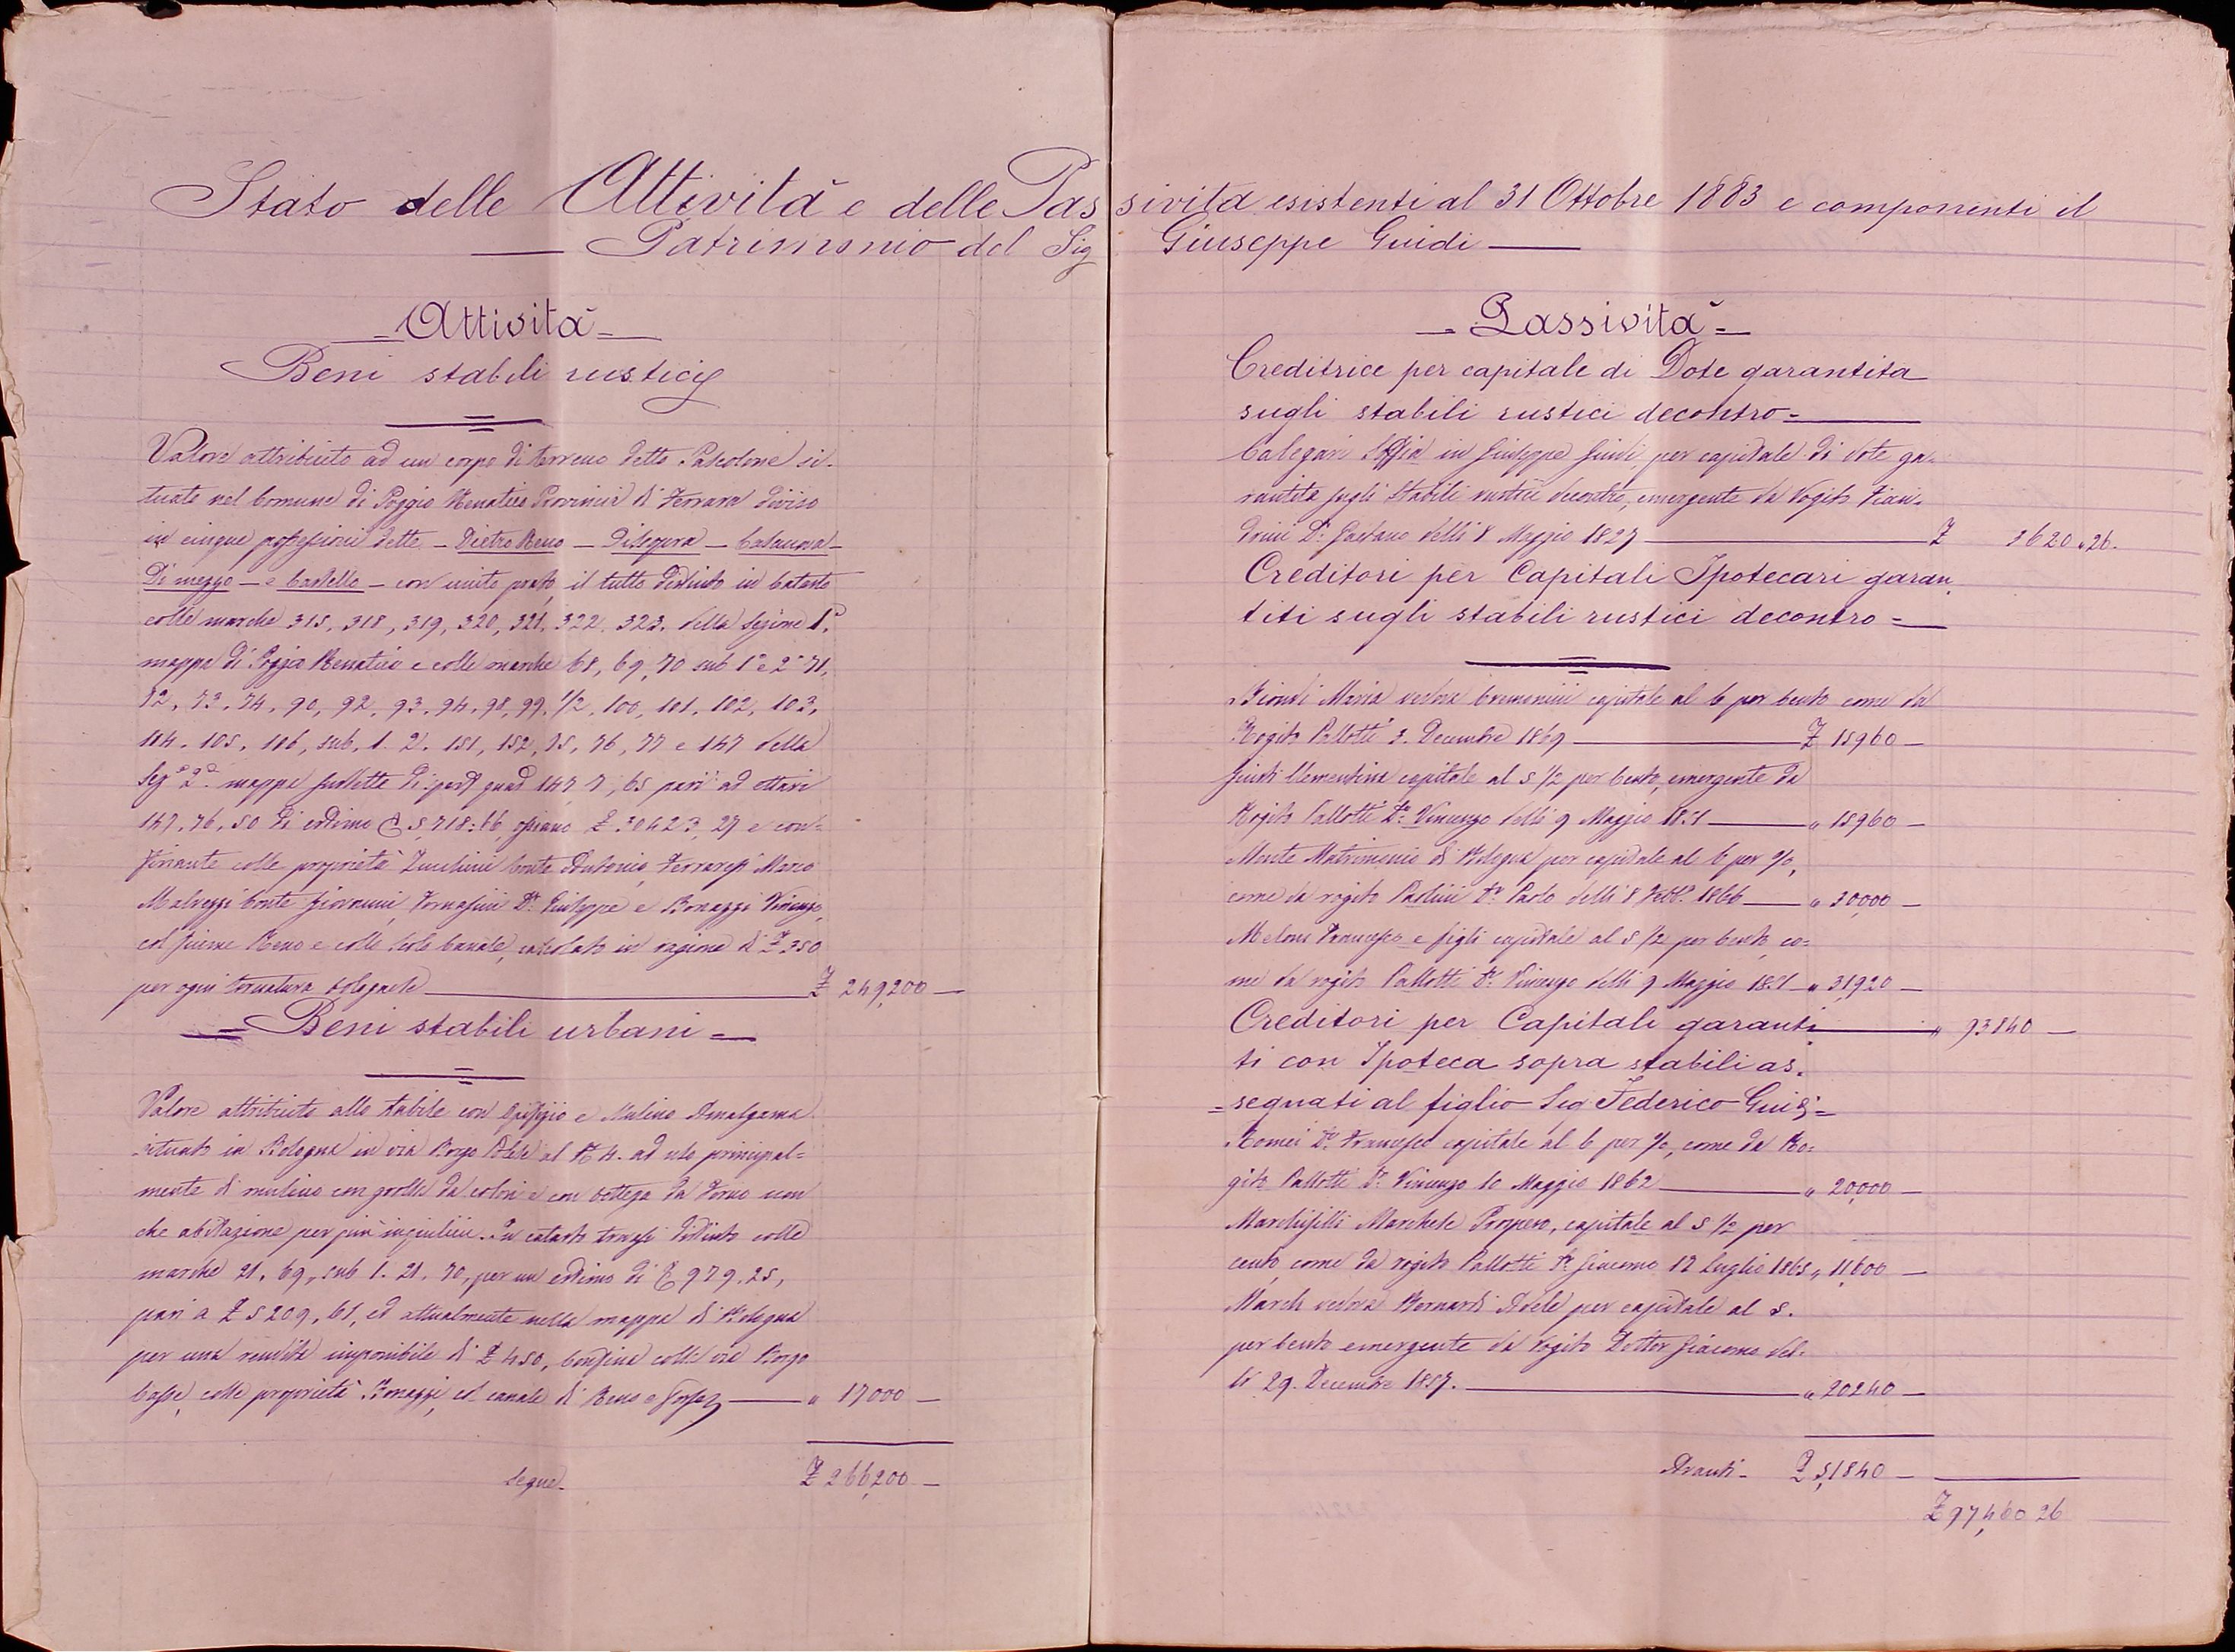 Stato delle Attività e delle Passività esistenti al 31 Ottobre 1883 e componenti il
Patrimonio del Sig Giuseppe Guidi
Attività
Beni stabili rustici
Valore attribuito ad un corpo di terreno detto Pascolone si-
tuato nel Comune di Poggio Renatico Provincia di Ferrara diviso
in cinque possessioni dette - Dietro Reno - Disegura - Casanova -
Di mezzo - e Castello - con unito prato, il tutto distinto in Catasto
colle marche 315, 318, 319, 320, 321, 322. 323. della Sezione 1ª
mappa di Poggio Renatico e colle marche 68, 69, 70 sub 1° e 2° 71,
72, 73, 74, 90, 92, 93, 94, 98, 99, 1/2, 100, 101, 102, 103,
104. 105, 106, sub. 1. 2. 151, 152, 75, 76, 77 e 147 della
Sezª 2ª mappa suddetta di pert quad 147 7, 65 pari ad ettari
147, 76, 50 di estimo 5718:66 ossiano £ 30423, 27 e con-
finante colle proprietà Zucchini Conte Antonio, Ferraresi Marco
Malvezzi Conte Giovanni, Tomasini Dr. Giuseppe e Bonazzi Vincenzo,
col fiume Reno e collo Scolo Canale, calcolato in ragione di £ 350
per ogni tornatura bolognese £ 249,200 —
= Beni stabili urbani =
Valore attribuito allo stabile con Opificio e Mulino Amalgama
situato in Bologna in via Borgo Casse al N 4. ad uso principal=
mente di mulino con grolle da colori e con bottega da Forno non
che abitazione per più inquilini. In catasto trovasi distinto colle
marche 21, 69, sub 1. 21, 70, per un estimo di 979.25,
pari a £ 5209, 61, ed attualmente nella mappa di Bologna
per una rendita imponibile di £ 450, confina colla via Borgo
Casse, colle proprietà Bonazzi, col canale di Reno e " 17000 —
Segue £ 266,200 —
- Passività -
Creditrice per capitale di Dote garantita
sugli stabili rustici decontro =
Calegari Soffia in Giuseppe Guidi, per capitale di dote ga-
rantita sugli stabili rustici decontro, emergente da rogito Fian-
drini Dr. Gaetano delli 8 Maggio 1827 £ 3620.26.
Creditori per Capitali Ipotecari garan
titi sugli stabili rustici decontro =
Biondi Maria vedova Cremonini capitale al 6 per cento come da
Rogito Pallotti 3. Decembre 1869 £ 15960 —
Guidi Clementina capitale al 5 1/2 per Cento, emergente da
Rogito Pallotti Dr. Vincenzo delli 9 Maggio 1851 " 15960 —
Monte Matrimonio di Bologna per capitale al 6 per %,
come da rogito Paolini Dr Paolo delli 8 Febbº 1866 " 30,000 —
Meloni Francesco e figli capitale al 5 1/2 per Cento, co=
me da rogito Pallotti Dr. Vincenzo delli 9 Maggio 1851 " 31,920 —
Creditori per Capitali garanti " 93840 —
ti con Ipoteca sopra stabili as.
= segnati al figlio Sig Federico Guidi =
Romei Dr. Francesco capitale al 6 per %, come da Ro=
gito Pallotti Dr. Vincenzo 10 Maggio 1862 " 20,000 —
Marchisilli Marchese Prospero, capitale al 5 1/2 per
cento, come da rogito Pallotti Dr. Giacomo 12 Luglio 1865 " 11,600 —
March vedova Bernardi Adele per capitale al 5.
per Cento emergente da rogito Dottor Giacomo del-
li 29. Decembre 1857. " 20240 —
Avanti - £ 51840 —
£ 97,460 26